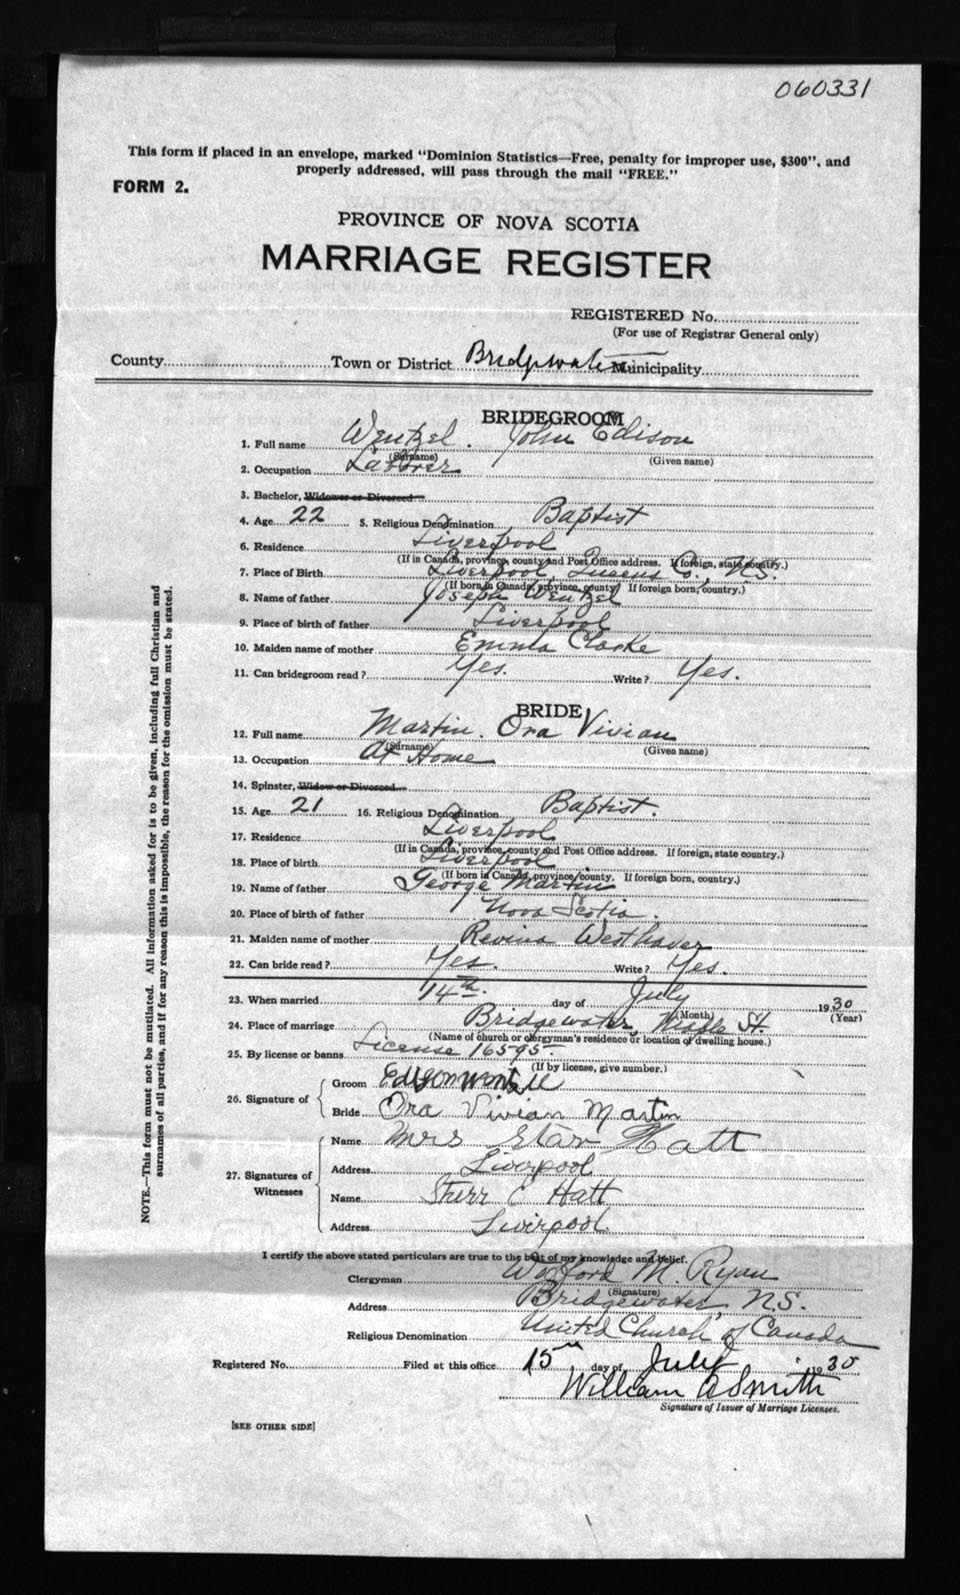 060331
This form if placed in an envelope, marked "Dominion Statistics—Free, penalty for improper use, $300", and
properly addressed, will pass through the mail "FREE."
FORM 2.
PROVINCE OF NOVA SCOTIA
MARRIAGE REGISTER
REGISTERED No.
(For use of Registrar General only)
County Town or District Bridgewater Municipality
BRIDEGROOM
1. Full name Wentzel. John Edison
(Surname) (Given name)
2. Occupation Laborer
3. Bachelor, Widower or Divorced
4. Age 22 5. Religious Denomination Baptist
6. Residence Liverpool
(If in Canada, province, county and Post Office address. If foreign, state country.)
7. Place of Birth Liverpool Queens Co., N.S.
(If born in Canada, province, county. If foreign born, country.)
8. Name of father Joseph Wentzel
9. Place of birth of father Liverpool
10. Maiden name of mother Emma Clarke
11. Can bridegroom read? Yes. Write? Yes.
BRIDE
12. Full name Martin. Ora Vivian
(Surname) (Given name)
13. Occupation At Home
14. Spinster, Widow or Divorced
15. Age 21 16. Religious Denomination Baptist.
17. Residence Liverpool
(If in Canada, province, county and Post Office address. If foreign, state country.)
18. Place of birth Liverpool
(If born in Canada, province/county. If foreign born, country.)
19. Name of father George Martin
20. Place of birth of father Nova Scotia.
21. Maiden name of mother Revina Westhaver
22. Can bride read? Yes. Write? Yes.
23. When married 14th. day of July 1930
(Month) (Year)
24. Place of marriage Bridgewater, Maple St.
(Name of church or clergyman's residence or location of dwelling house.)
25. By license or banns License 16595.
(If by license, give number.)
26. Signature of
Groom Edison Wentzell
Bride Ora Vivian Martin
27. Signatures of Witnesses
Name Mrs Starr Hatt
Address Liverpool
Name Starr E Hatt
Address Liverpool.
I certify the above stated particulars are true to the best of my knowledge and belief.
Clergyman M. Ryan
(Signature)
Address Bridgewater, N.S.
Religious Denomination United Church of Canada
Registered No. Filed at this office 15th day of July 1930
William A Smith
Signature of Issuer of Marriage Licenses.
[SEE OTHER SIDE]
NOTE.—This form must not be mutilated. All information asked for is to be given, including full Christian and
surnames of all parties, and if for any reason this is impossible, the reason for the omission must be stated.